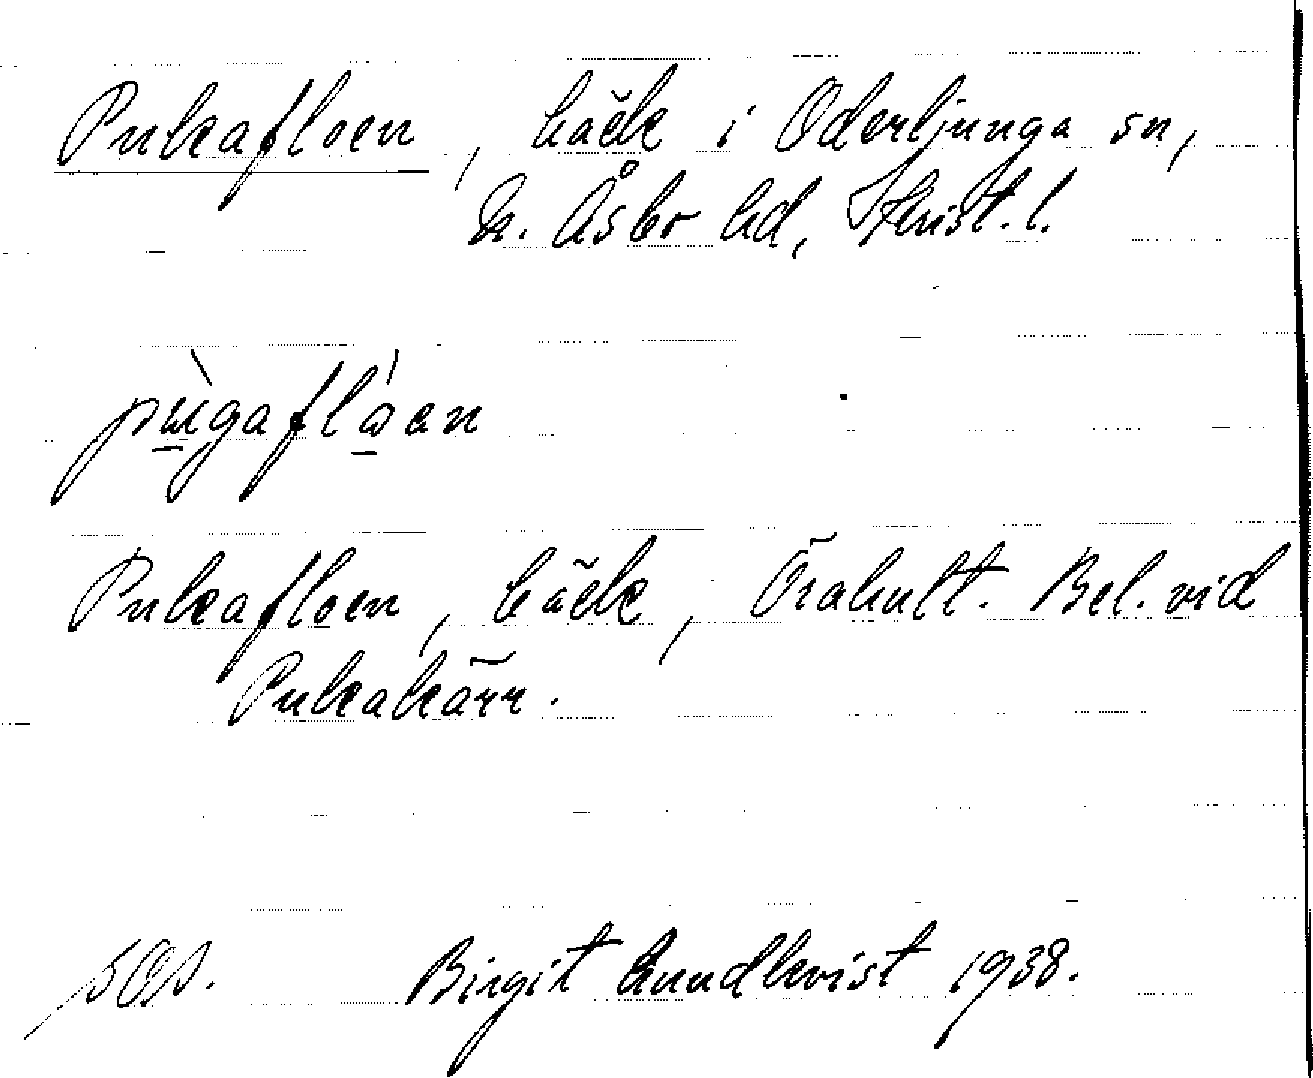 Pukafloen, bäck i Oderljunga sn,
N. Åsbo hd, Krist. l.
pùgaflóan
Pukafloen, bäck, Örahult. Bel. vid
Pukakärr.
Birgit Lundkvist 1938.